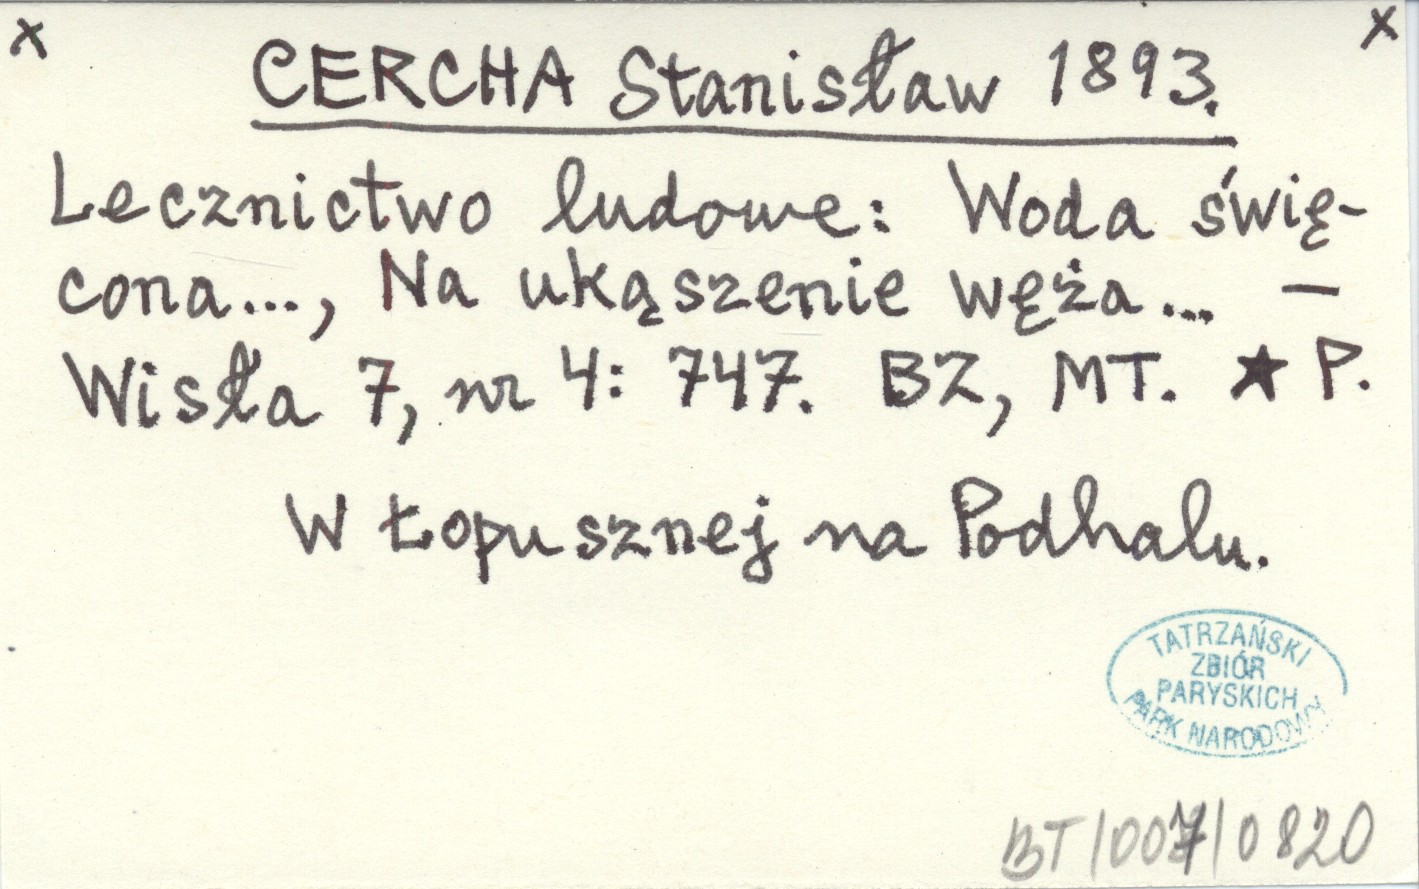 x x
CERCHA Stanisław 1893.
Lecznictwo ludowe: Woda świę-
cona..., Na ukąszenie węża... —
Wisła 7, nr 4: 747. BZ, MT. ★ P.
W Łopusznej na Podhalu.
TATRZAŃSKI
ZBIÓR
PARYSKICH
PARK NARODOWY
BT/007/0820